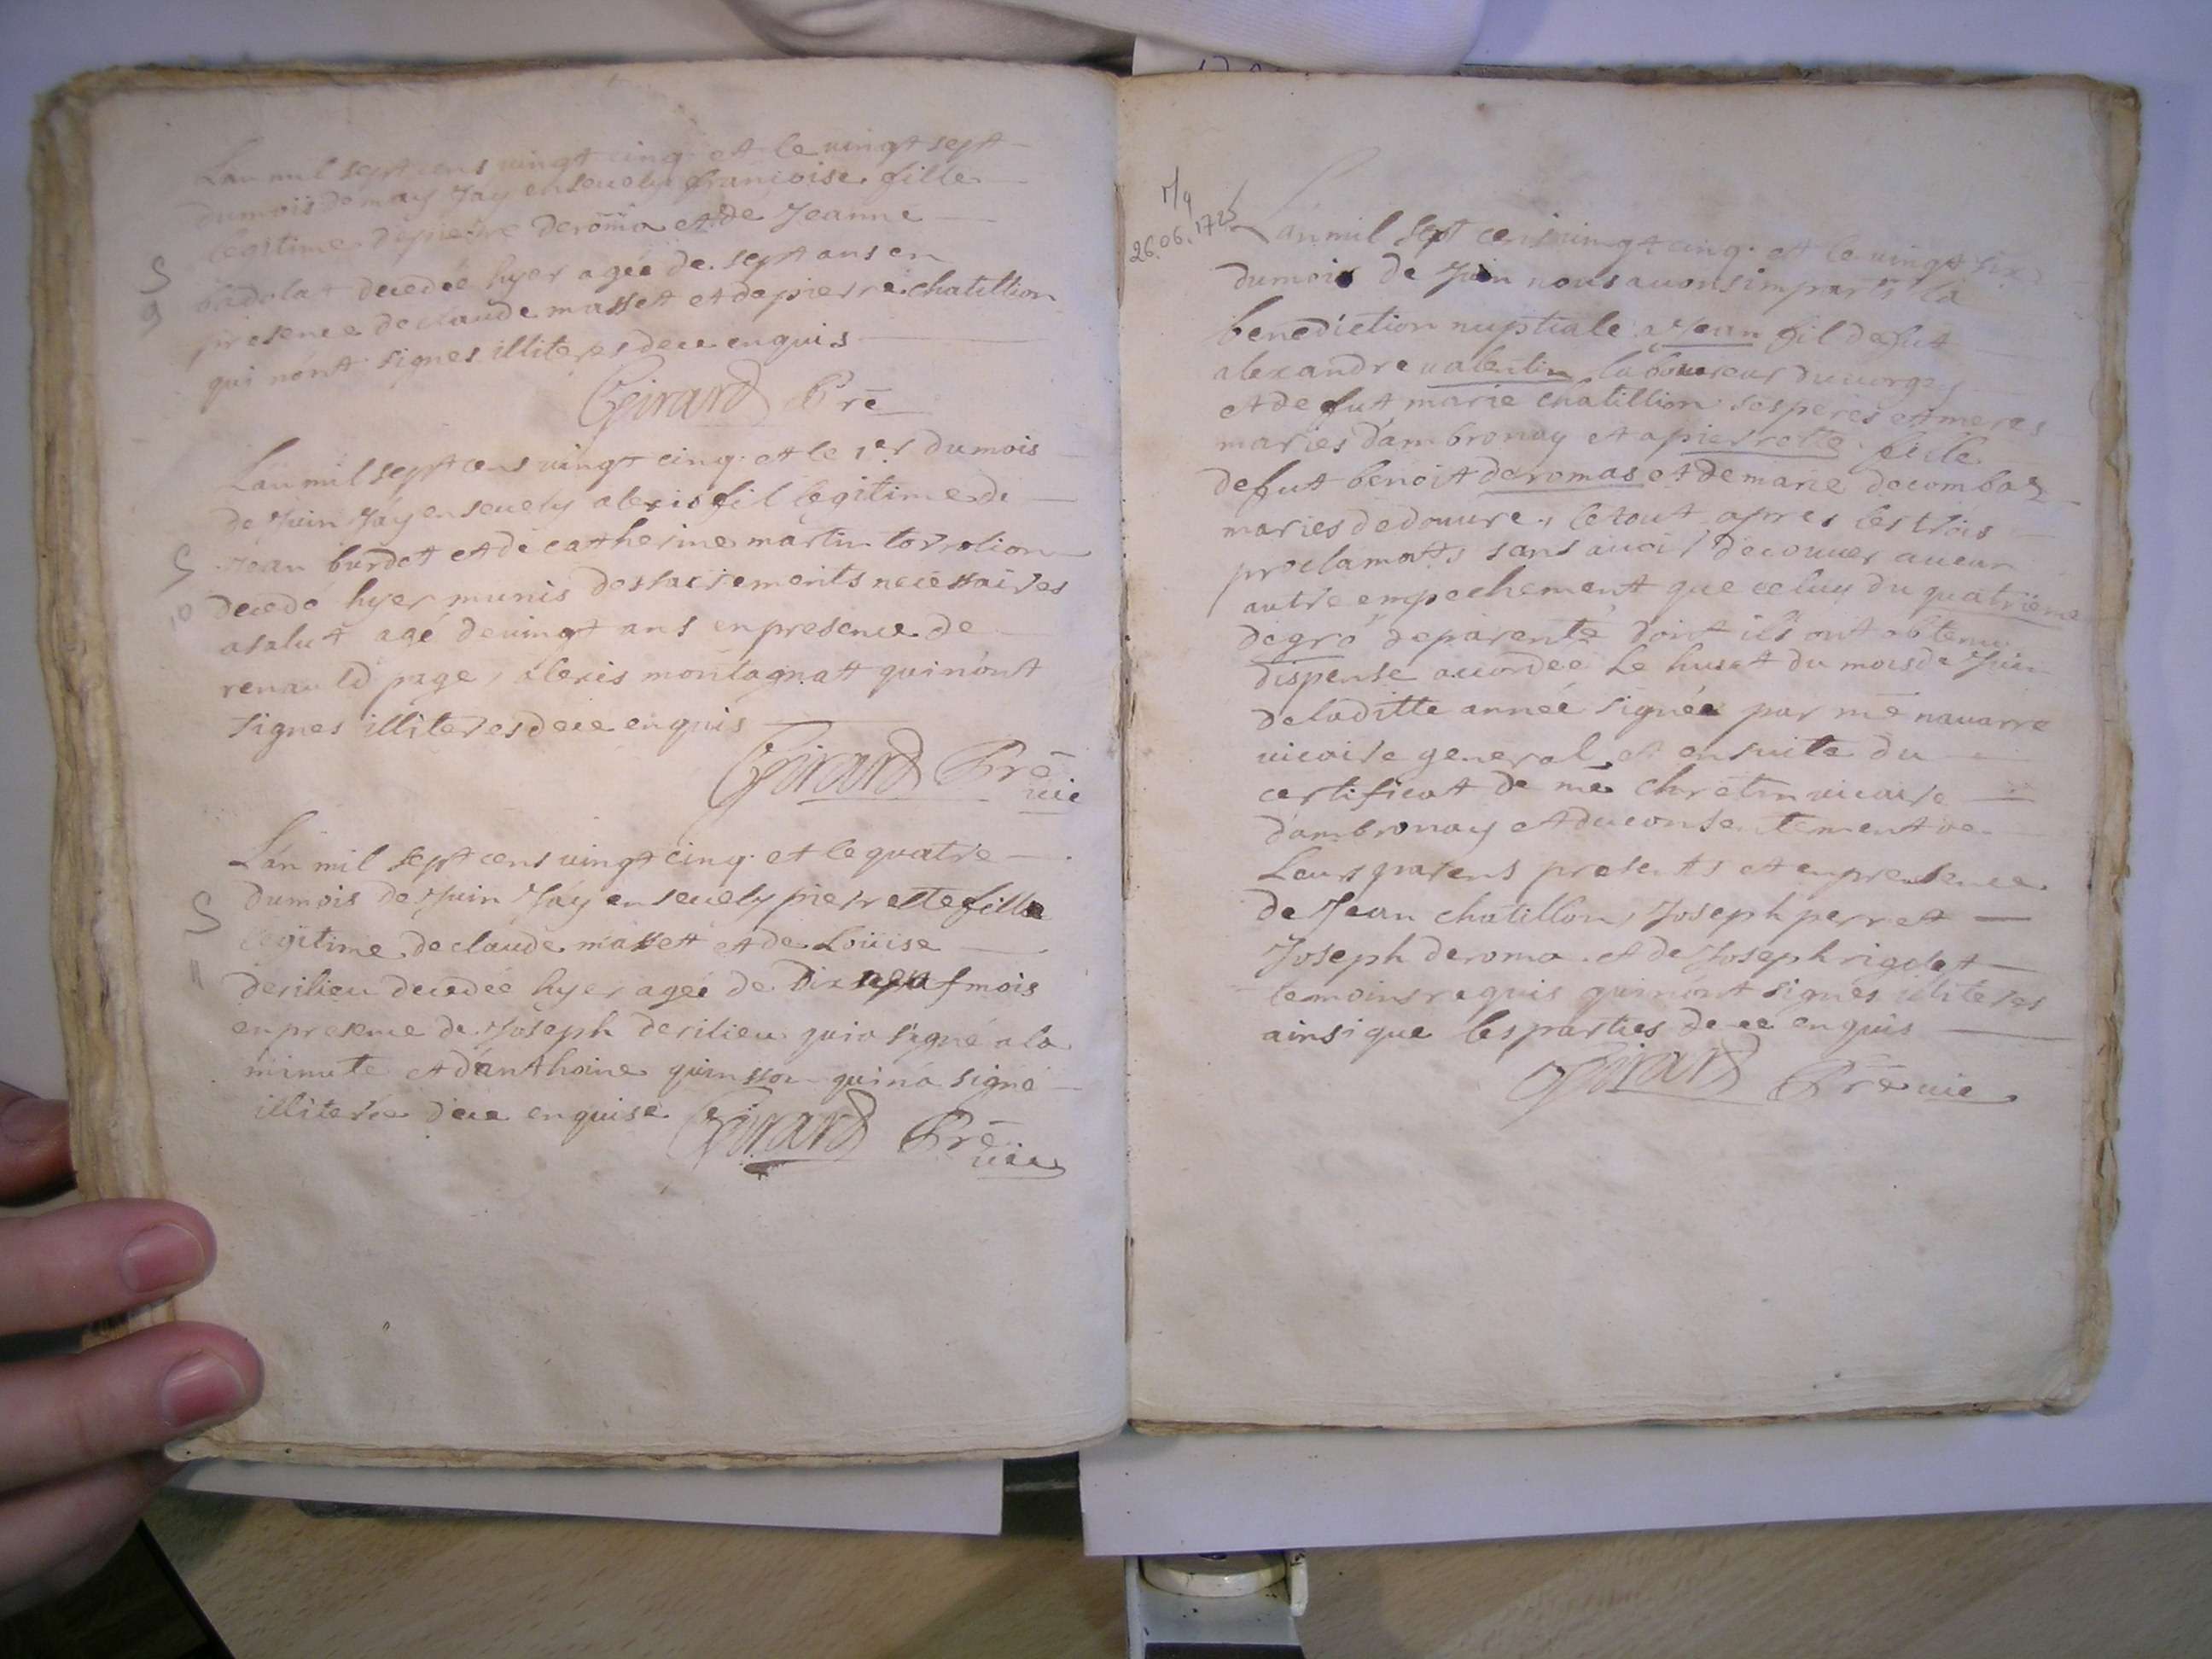 Lan mil sept cens vingt cinq et le vingt sept
dumois de may Jay ensevely francoise fille
legitime de pierre deroma et de Jeanne
decedée hyer agée de sept ans en
S
9
presence de claude massett et de pierre chatillion
qui nont signes illiteres dece enquis
Girard Pre
Lan mil sept cens vingt cinq et le 1er dumois
de Juin Jay ensevely alexis fil legitime de
S
Jean burdet et de catherine martin
10
decedé hyer munis des sacrements necessaires
a salut agé de vingt ans en presence de
renauld page, alexis montagnatt qui nont
signes illiteres dece enquis
Girard Pre
vic
Lan mil sept cens vingt cinq et le quatre
dumois de Juin Jay ensevely pierrette fille
S
11
legitime de claude massett et de Loüise
derilieu decedée hyer agée de dix neuf mois
en presence de Joseph derilieu qui a signé a la
minute et danthoine quinsson qui na signé
illiterée dece enquise Girard Pre
vic
M9
26.06.1725
Lan mil sept cens vingt cinq et le vingt six
dumois de Juin nous avons imparti la
benediction nuptiale a Jean fil de fut
alexandre valentin laboureur du
et de fut marie chatillion ses peres et meres
maries dambronay et a pierrette fille
de fut benoit deromas et de marie decombaz
maries de douvre, le tout apres les trois
proclamatts sans avoir decouver aucun
autre empechement que celuy du quatrieme
degré de parenté dont ils ont obtenu
dispense accordée le huset du mois de Juin
de laditte année signée par me navarre
vicaire general, et ensuite du
certificat de me chretin vicaire
dambronay et du consentement de
Leurs parens presents et en presence
de Jean chatillon, Joseph perret
Joseph deroma et de Joseph rigolet
temoins requis qui nont signés illiteres
ainsi que les parties dece enquis
Girard Pre vic